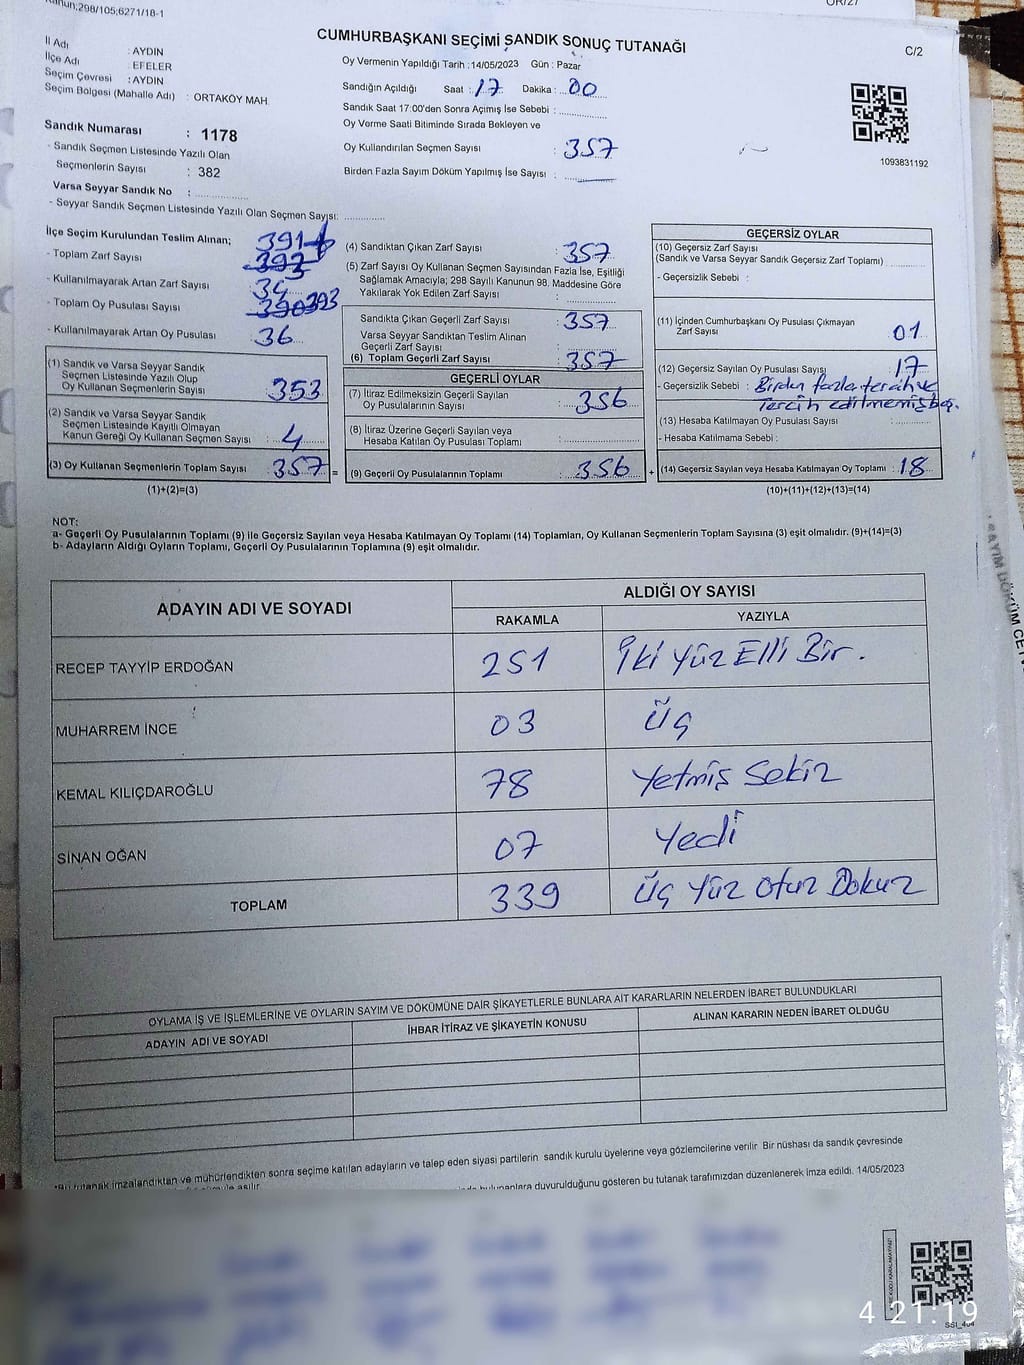 Kanun:298/105;6271/18-1
ÖR/27
CUMHURBAŞKANI SEÇİMİ SANDIK SONUÇ TUTANAĞI
C/2
İl Adı : AYDIN
İlçe Adı : EFELER
Seçim Çevresi : AYDIN
Seçim Bölgesi (Mahalle Adı) : ORTAKÖY MAH.
Sandık Numarası : 1178
- Sandık Seçmen Listesinde Yazılı Olan
Seçmenlerin Sayısı : 382
Varsa Seyyar Sandık No :
- Seyyar Sandık Seçmen Listesinde Yazılı Olan Seçmen Sayısı:
Oy Vermenin Yapıldığı Tarih :14/05/2023 Gün : Pazar
Sandığın Açıldığı Saat : 17 Dakika : 00
Sandık Saat 17:00'den Sonra Açımış İse Sebebi :
Oy Verme Saati Bitiminde Sırada Bekleyen ve
Oy Kullandırılan Seçmen Sayısı : 357
Birden Fazla Sayım Döküm Yapılmış İse Sayısı :
1093831192
İlçe Seçim Kurulundan Teslim Alınan;
391
- Toplam Zarf Sayısı 393
- Kullanılmayarak Artan Zarf Sayısı 34
- Toplam Oy Pusulası Sayısı 390 393
- Kullanılmayarak Artan Oy Pusulası 36
(1) Sandık ve Varsa Seyyar Sandık
Seçmen Listesinde Yazılı Olup
Oy Kullanan Seçmenlerin Sayısı : 353
(2) Sandık ve Varsa Seyyar Sandık
Seçmen Listesinde Kayıtlı Olmayan
Kanun Gereği Oy Kullanan Seçmen Sayısı : 4
(3) Oy Kullanan Seçmenlerin Toplam Sayısı : 357 =
(1)+(2)=(3)
(4) Sandıktan Çıkan Zarf Sayısı : 357
(5) Zarf Sayısı Oy Kullanan Seçmen Sayısından Fazla İse, Eşitliği
Sağlamak Amacıyla; 298 Sayılı Kanunun 98. Maddesine Göre
Yakılarak Yok Edilen Zarf Sayısı :
Sandıkta Çıkan Geçerli Zarf Sayısı : 357
Varsa Seyyar Sandıktan Teslim Alınan
Geçerli Zarf Sayısı :
(6) Toplam Geçerli Zarf Sayısı : 357
GEÇERLİ OYLAR
(7) İtiraz Edilmeksizin Geçerli Sayılan
Oy Pusulalarının Sayısı : 356
(8) İtiraz Üzerine Geçerli Sayılan veya
Hesaba Katılan Oy Pusulası Toplamı :
(9) Geçerli Oy Pusulalarının Toplamı : 356 +
GEÇERSİZ OYLAR
(10) Geçersiz Zarf Sayısı
(Sandık ve Varsa Seyyar Sandık Geçersiz Zarf Toplamı)
- Geçersizlik Sebebi :
(11) İçinden Cumhurbaşkanı Oy Pusulası Çıkmayan
Zarf Sayısı 01
(12) Geçersiz Sayılan Oy Pusulası Sayısı : 17
- Geçersizlik Sebebi : Birden fazla tercih ve
Tercih edilmemiş boş.
(13) Hesaba Katılmayan Oy Pusulası Sayısı :
- Hesaba Katılmama Sebebi :
(14) Geçersiz Sayılan veya Hesaba Katılmayan Oy Toplamı : 18
(10)+(11)+(12)+(13)=(14)
NOT:
a- Geçerli Oy Pusulalarının Toplamı (9) ile Geçersiz Sayılan veya Hesaba Katılmayan Oy Toplamı (14) Toplamları, Oy Kullanan Seçmenlerin Toplam Sayısına (3) eşit olmalıdır. (9)+(14)=(3)
b- Adayların Aldığı Oyların Toplamı, Geçerli Oy Pusulalarının Toplamına (9) eşit olmalıdır.
ADAYIN ADI VE SOYADI
ALDIĞI OY SAYISI
RAKAMLA YAZIYLA
RECEP TAYYİP ERDOĞAN 251 İki Yüz Elli Bir.
MUHARREM İNCE 03 Üç
KEMAL KILIÇDAROĞLU 78 Yetmiş Sekiz
SİNAN OĞAN 07 Yedi
TOPLAM 339 Üç Yüz Otuz Dokuz
OYLAMA İŞ VE İŞLEMLERİNE VE OYLARIN SAYIM VE DÖKÜMÜNE DAİR ŞİKAYETLERLE BUNLARA AİT KARARLARIN NELERDEN İBARET BULUNDUKLARI
ADAYIN ADI VE SOYADI İHBAR İTİRAZ VE ŞİKAYETİN KONUSU ALINAN KARARIN NEDEN İBARET OLDUĞU
*Bu tutanak imzalandıktan ve mühürlendikten sonra seçime katılan adayların ve talep eden siyasi partilerin sandık kurulu üyelerine veya gözlemcilerine verilir. Bir nüshası da sandık çevresinde
bulunanlara duyurulduğunu gösteren bu tutanak tarafımızdan düzenlenerek imza edildi. 14/05/2023
4 21:19